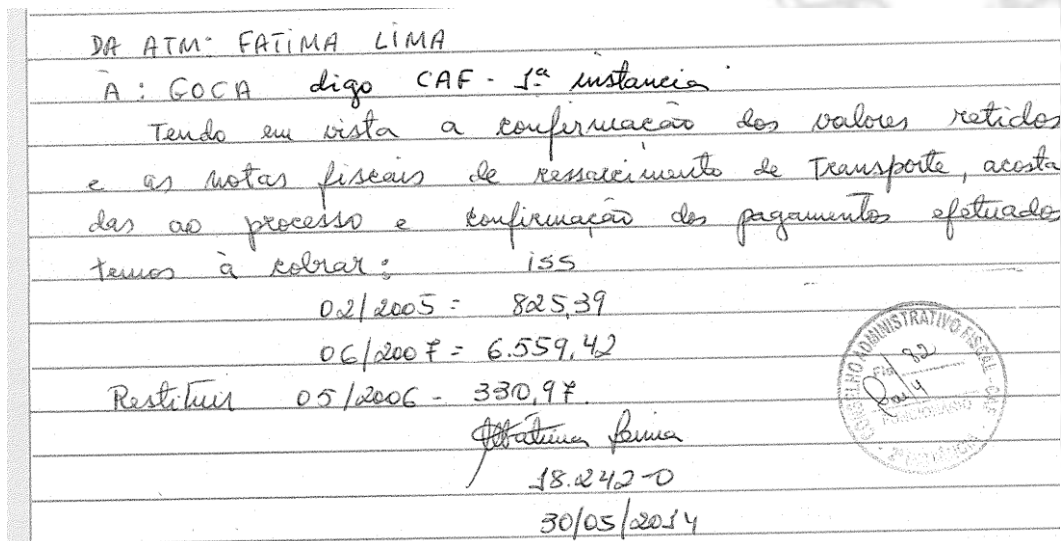 DA ATM: FATIMA LIMA
À: GOCA digo CAF - 1ª instancia
Tendo em vista a confirmação dos valores retidos
e as notas fiscais de ressarcimento de Transporte, acosta
das ao processo e confirmação dos pagamentos efetuados
temos à cobrar: iss
02/2005 = 825,39
06/2007 = 6.559,42
Restituir 05/2006 - 330,97.
Fatima Lima
18.242-0
30/05/2014
CONSELHO ADMINISTRATIVO FISCAL - CAF
Fls 82
FUNCIONÁRIO
2ª INSTÂNCIA